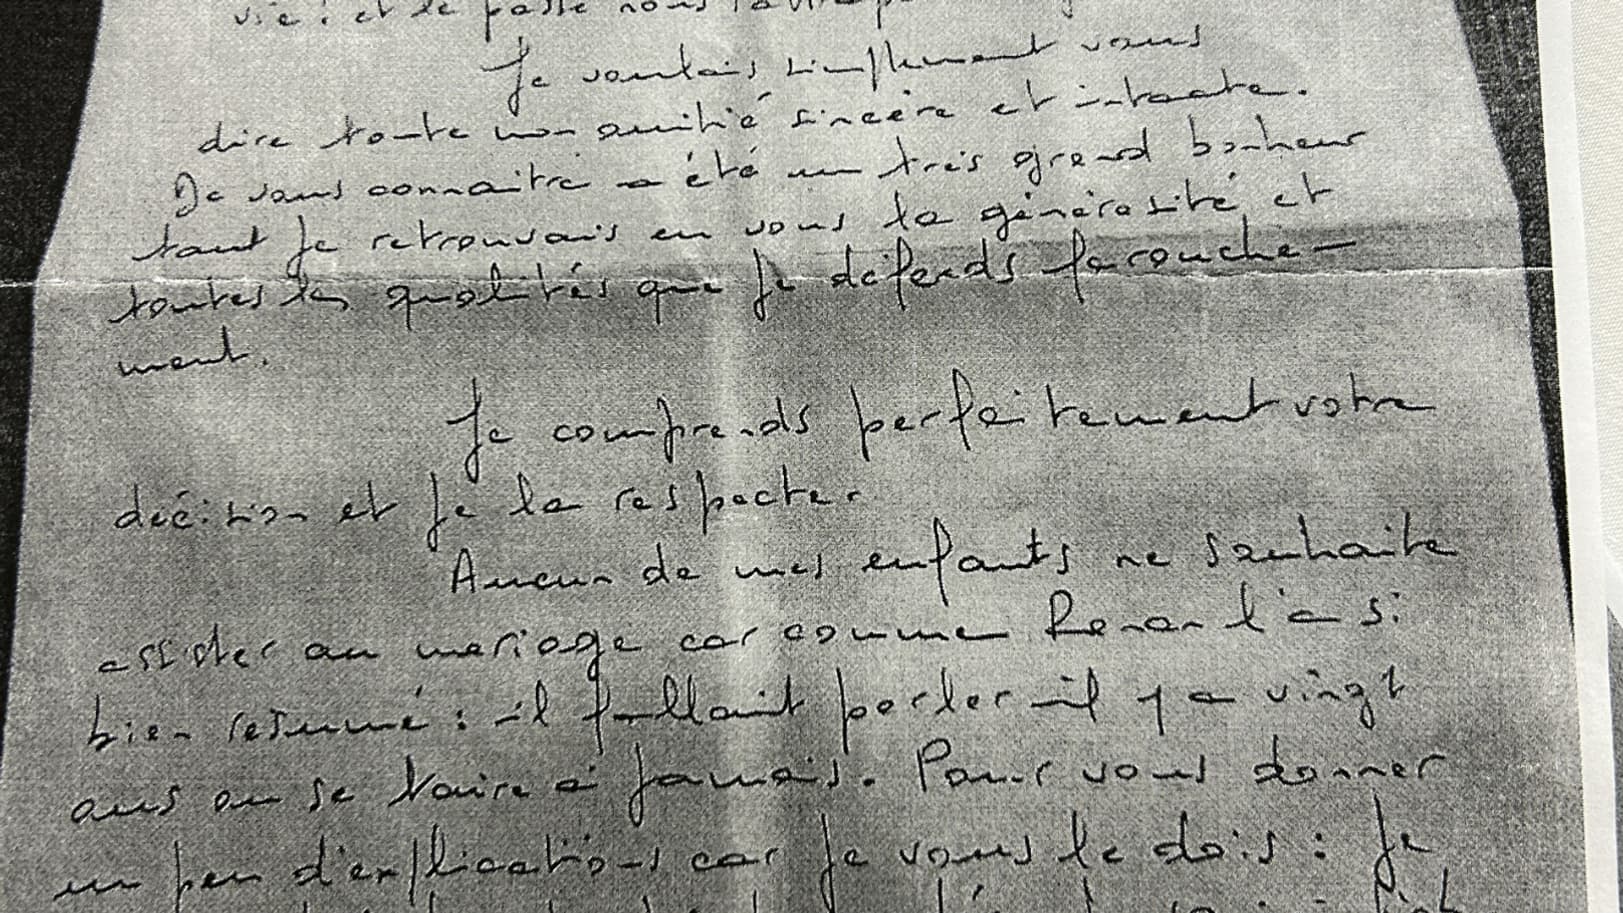 vie : et le passé nous
Je voulais simplement vous
dire toute mon amitié sincère et intacte.
De vous connaitre a été un très grand bonheur
tant je retrouvais en vous la générosité et
toutes les qualités que je défends farouche-
ment.
Je comprends parfaitement votre
décision et je la respecte.
Aucun de mes enfants ne souhaite
assister au mariage car comme Renan l'a si
bien résumé : il fallait parler il y a vingt
ans ou se taire à jamais. Pour vous donner
un peu d'explications car je vous le dois : Je